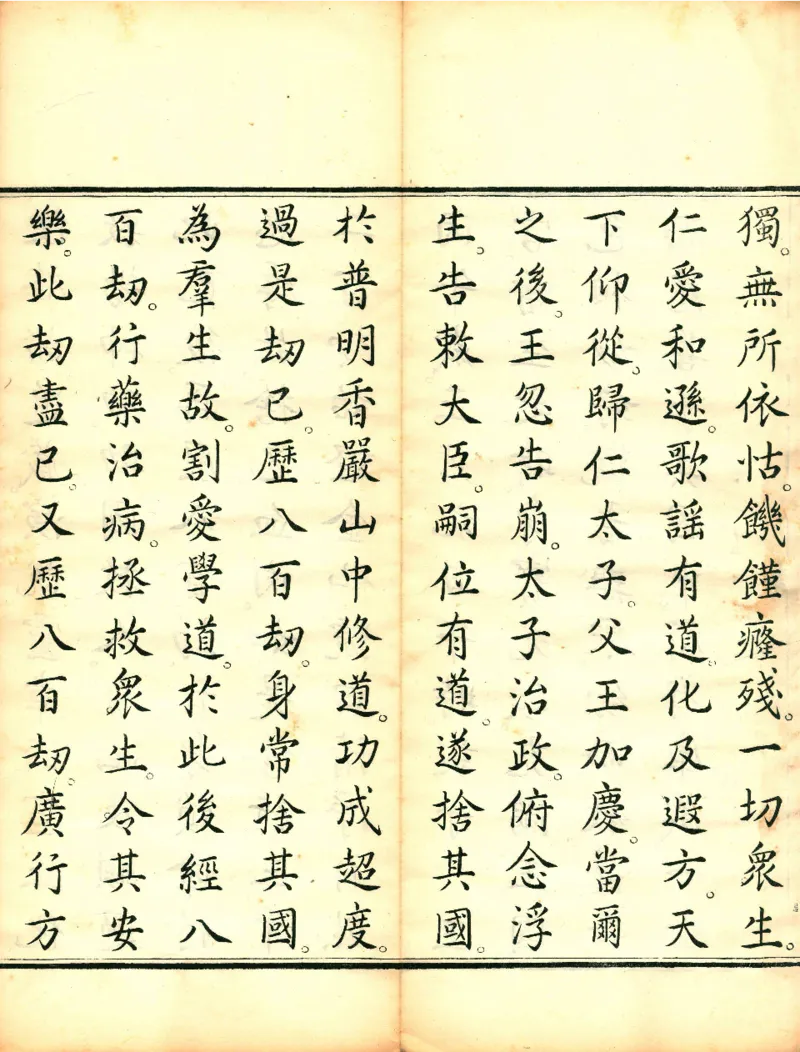 獨。無所依怙。饑饉癃殘。一切眾生。
仁愛和遜。歌謡有道。化及遐方。天
下仰從。歸仁太子。父王加慶。當爾
之後。王忽告崩。太子治政。俯念浮
生。告敕大臣。嗣位有道。遂捨其國。
於普明香嚴山中修道。功成超度。
過是劫已。歷八百劫。身常捨其國。
為羣生故。割愛學道。於此後經八
百劫。行藥治病。拯救眾生。令其安
樂。此劫盡已。又歷八百劫。廣行方